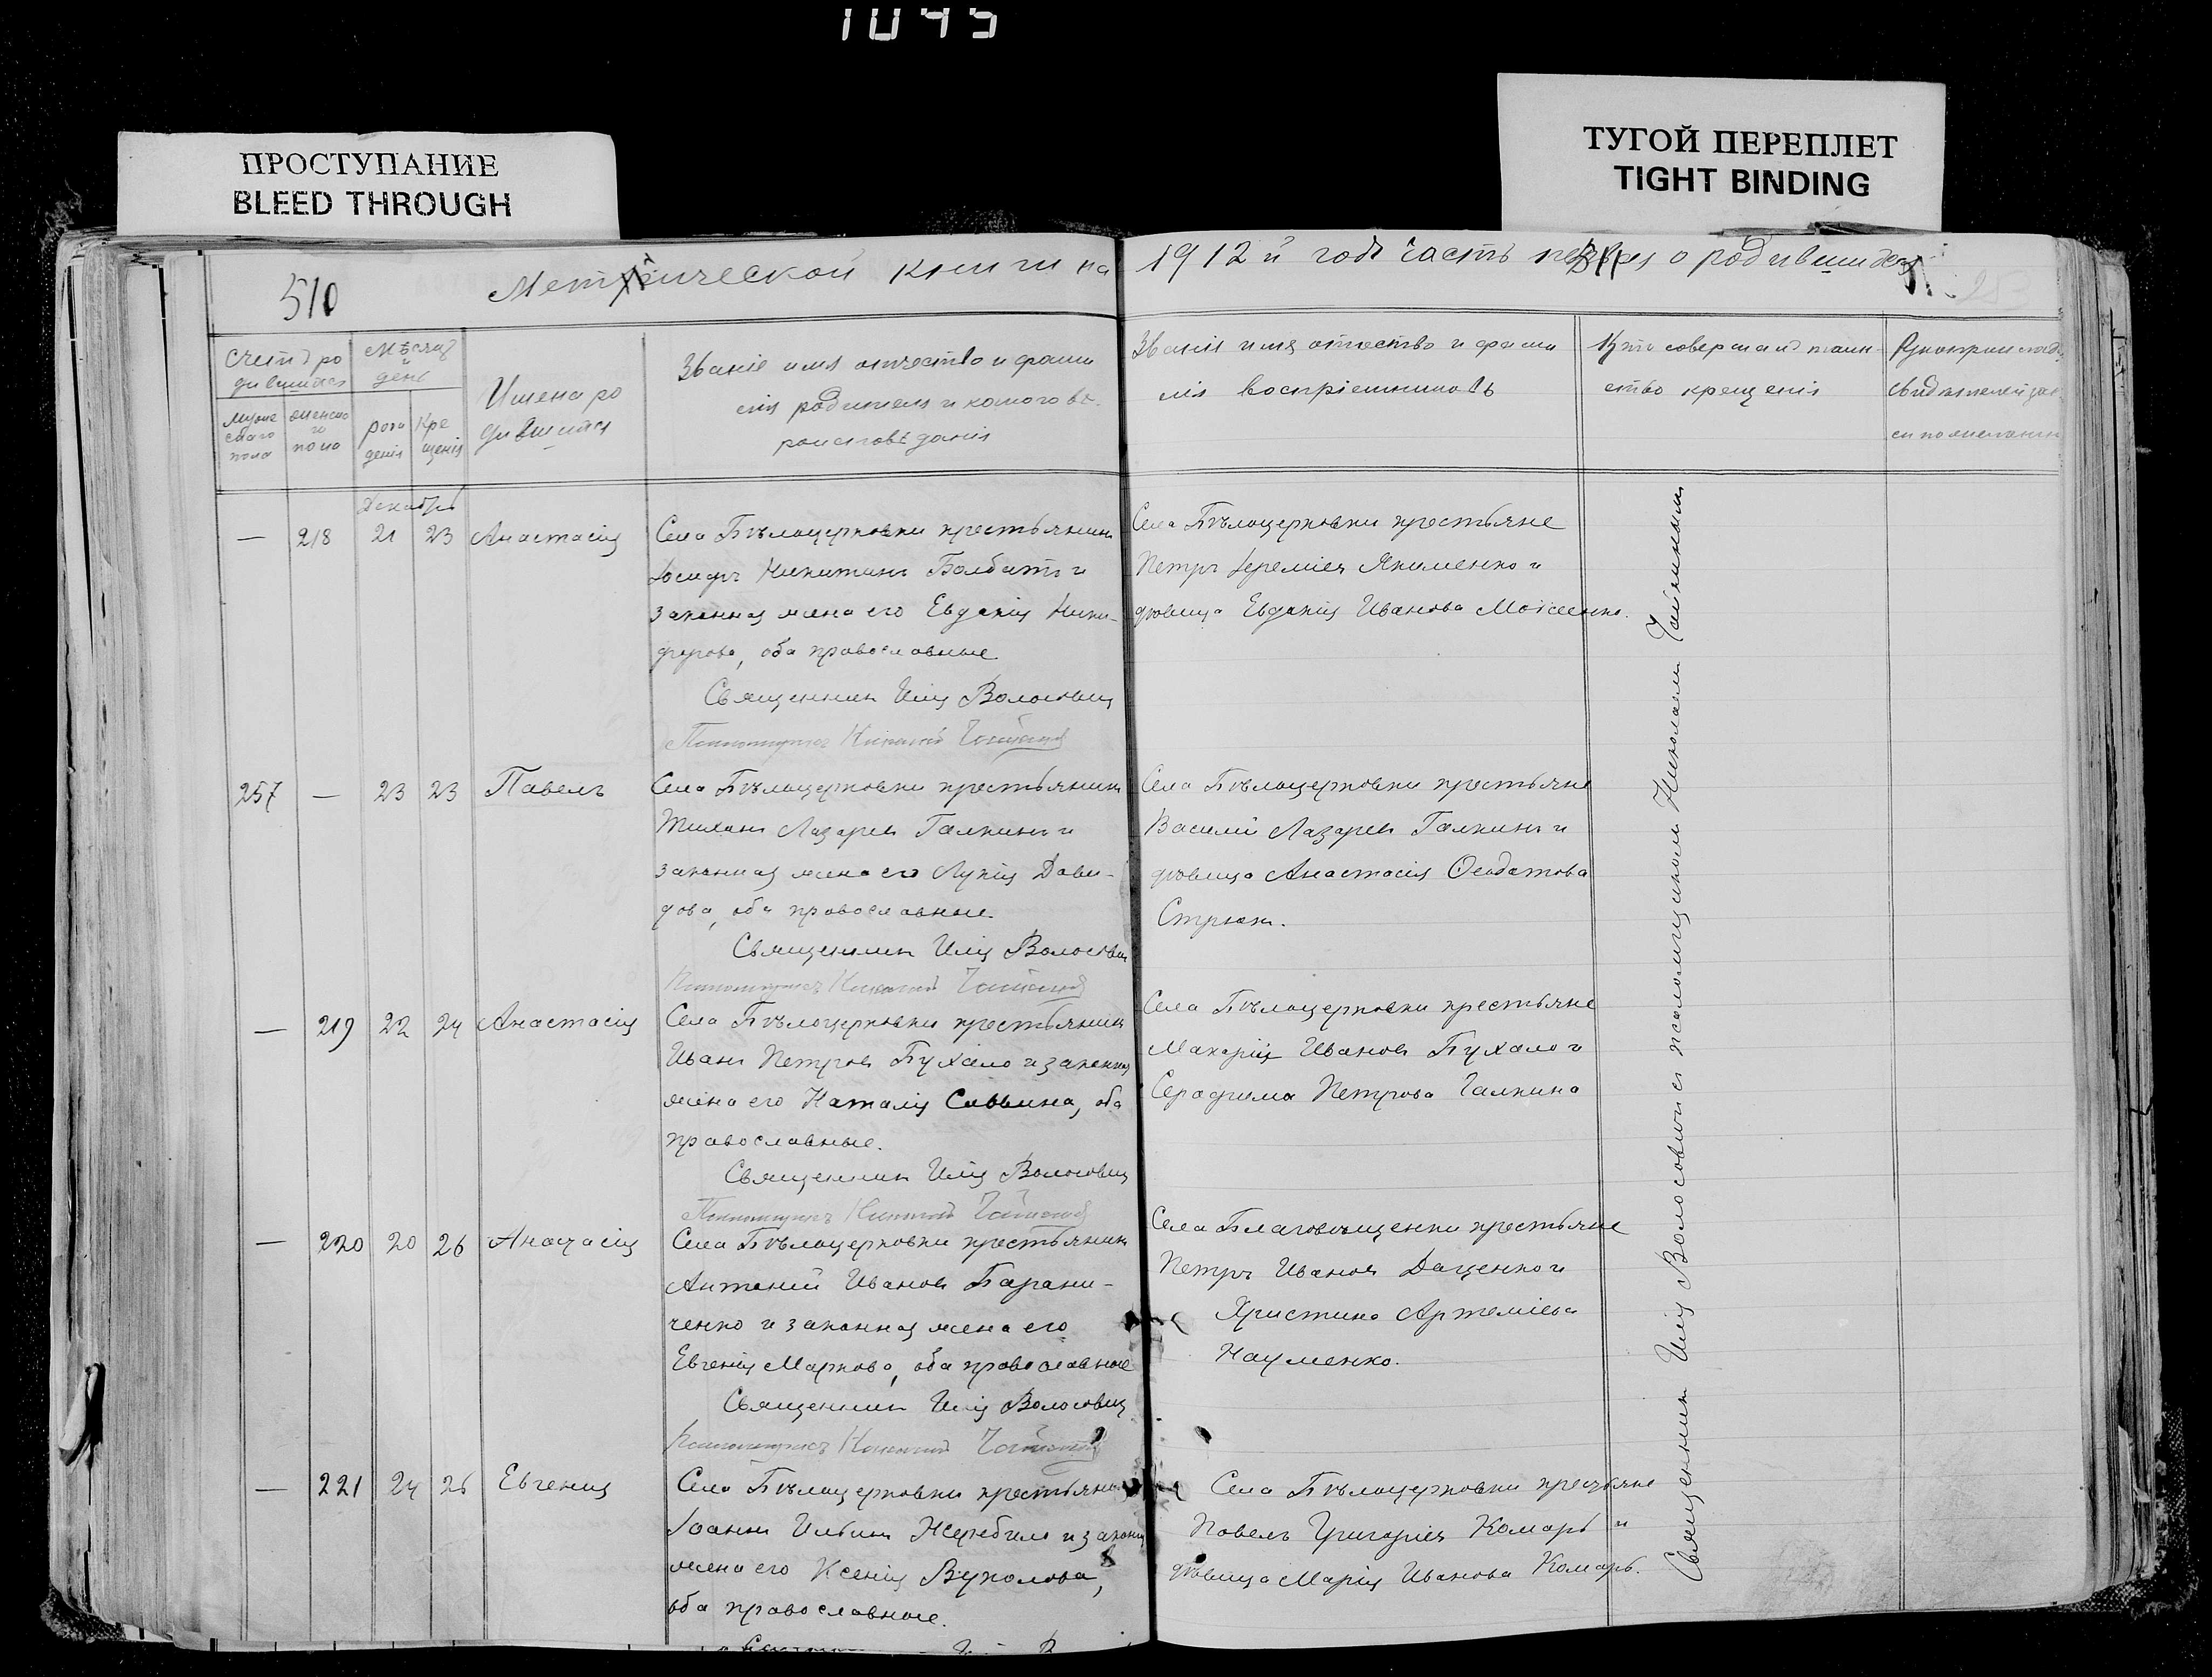 1045
ПРОСТУПАНИЕ
BLEED THROUGH
ТУГОЙ ПЕРЕПЛЕТ
TIGHT BINDING
510
Метрической книги на 1912й годъ часть первая о родившихся
Счетъ ро
дившихся
Мѣсяцъ
и
день
муже
скаго
пола
женска
го
пола
рож
денія
Кре
щенія
Имена ро
дившихся
Званіе имя отчество и фами
лія родителя и какого вѣ-
роисповѣданія
Званіе имя отчество и фами
лія воспріемниковъ
Кто совершалъ таин-
ство крещенія
Рукоприклад
свидѣтелей
Декабрь
— 218 21 23 Анастасія
Села Бѣлоцерковки крестьянинъ
Іосифъ Никитинъ Болбатъ и
законная жена его Евдокія Ники-
форова, оба православные
Священникъ Илія Волосовичъ
Псаломщикъ Николай
Села Бѣлоцерковки крестьяне
Петръ Іереміевъ Якименко и
дѣвица Евдокія Иванова Моисеенко.
257 — 23 23 Павелъ
Села Бѣлоцерковки крестьянинъ
Тихонъ Лазаревъ Галкинъ и
законная жена его Лукія Дави-
дова, оба православные.
Священникъ Илія Волосовичъ
Псаломщикъ Николай
Села Бѣлоцерковки крестьяне
Василій Лазаревъ Галкинъ и
дѣвица Анастасія Ѳеодотова
Стрюкъ.
— 219 22 24 Анастасія
Села Бѣлоцерковки крестьянинъ
Иванъ Петровъ Бухало и законная
жена его Наталія Саввина, оба
православные.
Священникъ Илія Волосовичъ
Псаломщикъ Николай
Села Бѣлоцерковки крестьяне
Макарій Ивановъ Бухало и
Серафима Петрова Галкина
— 220 20 26 Анастасія
Села Бѣлоцерковки крестьянинъ
Антоній Ивановъ Барани-
ченко и законная жена его
Евгенія Маркова, оба православные
Священникъ Илія Волосовичъ
Псаломщикъ Николай
Села Благовѣщенки крестьяне
Петръ Ивановъ Даценко и
Христина Артеміева
Науменко.
— 221 24 26 Евгенія
Села Бѣлоцерковки крестьянинъ
Іоаннъ Ильинъ Жеребило и законн
жена его Ксенія Вуколова,
оба православные.
Села Бѣлоцерковки крестьяне
Павелъ Григоріевъ Комаръ и
дѣвица Марія Иванова Комаръ.
Священникъ Илія Волосовичъ съ псаломщикомъ Николаемъ